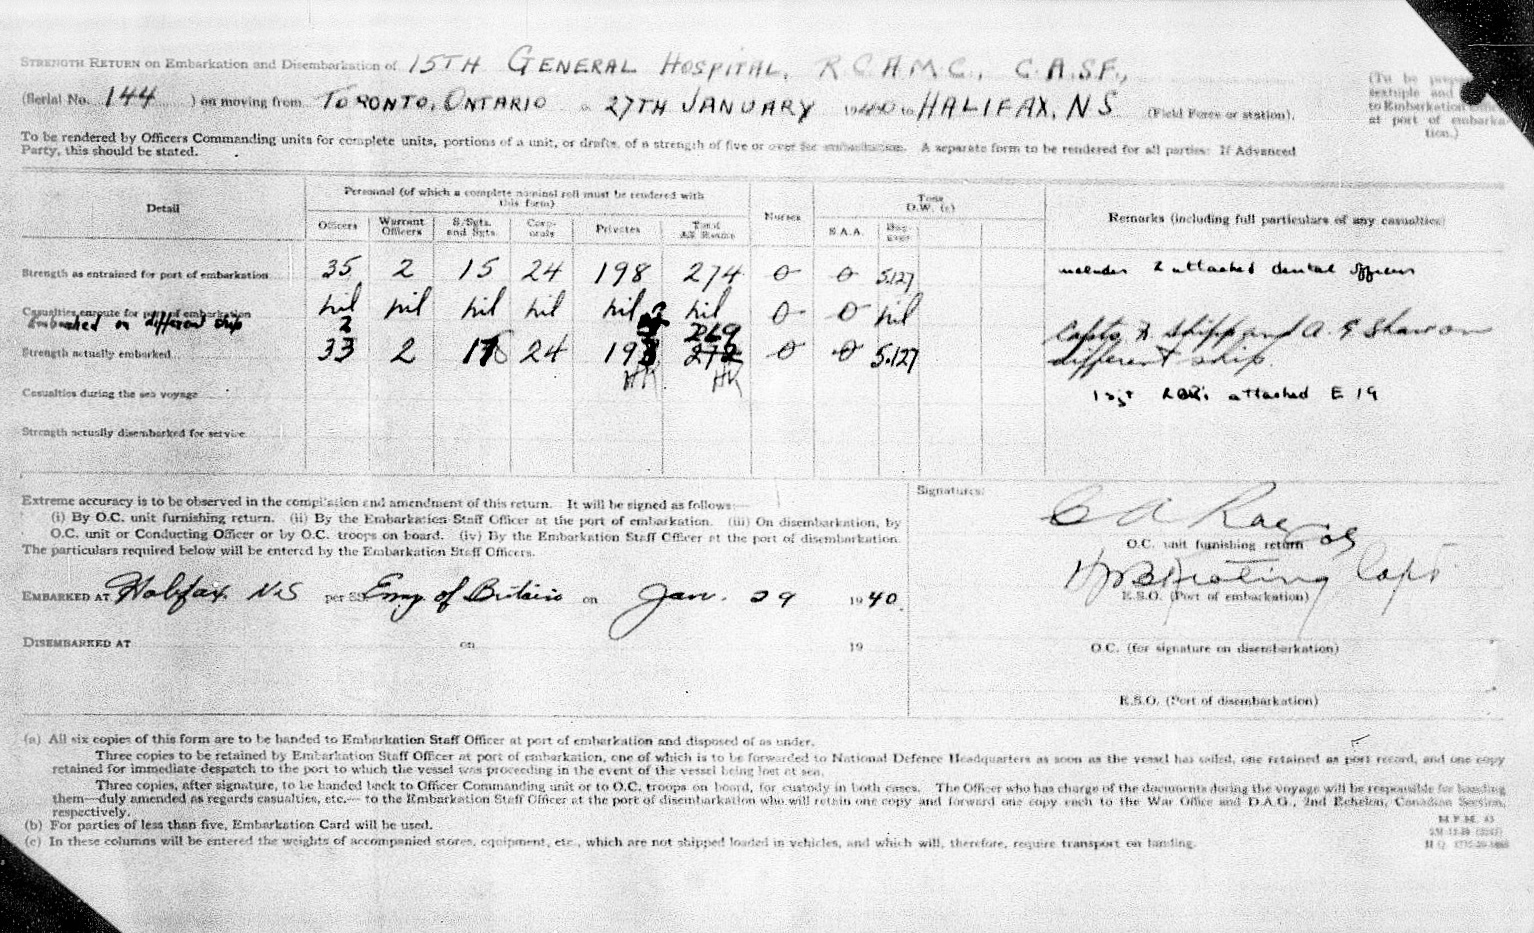 STRENGTH RETURN on Embarkation and Disembarkation of 15TH GENERAL HOSPITAL, R.C.A.M.C., C.A.S.F.,
(Serial No. 144 ) on moving from TORONTO, ONTARIO 27TH JANUARY 1940 to HALIFAX, N.S. (Field Force or station).
(To be
sextuple and
to Embarkation
at port of embarka-
tion.)
To be rendered by Officers Commanding units for complete units, portions of a unit, or drafts, of a strength of five or over for embarkation. A separate form to be rendered for all parties: If Advanced
Party, this should be stated.
Detail
Personnel (of which a complete nominal roll must be rendered with
this form)
Officers Warrant Officers S/Sgts. and Sgts. Corporals Privates Total All Ranks
Nurses
Tons
D.W. (c)
S.A.A.
Remarks (including full particulars of any casualties)
Strength as entrained for port of embarkation 35 2 15 24 198 274 0 0 5.127 includes 2 attached dental officers
Casualties enroute for port of embarkation nil nil nil nil nil nil 0 0 nil
Embarked on different ship 2 269 Capts Shipp and A. Shaw on
Strength actually embarked 33 2 24 193 272 0 0 5.127 different ship.
HK HK
Casualties during the sea voyage 1 sgt attached E 19
Strength actually disembarked for service
Extreme accuracy is to be observed in the compilation and amendment of this return. It will be signed as follows:—
(i) By O.C. unit furnishing return. (ii) By the Embarkation Staff Officer at the port of embarkation. (iii) On disembarkation, by
O.C. unit or Conducting Officer or by O.C. troops on board. (iv) By the Embarkation Staff Officer at the port of disembarkation.
The particulars required below will be entered by the Embarkation Staff Officers.
EMBARKED AT Halifax N.S per SS Emp of Britain on Jan. 29 1940.
DISEMBARKED AT on 19
Signatures:
C A Rae
O.C. unit furnishing return
Keating Capt
E.S.O. (Port of embarkation)
O.C. (for signature on disembarkation)
E.S.O. (Port of disembarkation)
(a) All six copies of this form are to be handed to Embarkation Staff Officer at port of embarkation and disposed of as under.
Three copies to be retained by Embarkation Staff Officer at port of embarkation, one of which is to be forwarded to National Defence Headquarters as soon as the vessel has sailed, one retained as port record, and one copy
retained for immediate despatch to the port to which the vessel was proceeding in the event of the vessel being lost at sea.
Three copies, after signature, to be handed back to Officer Commanding unit or to O.C. troops on board, for custody in both cases. The Officer who has charge of the documents during the voyage will be responsible for handing
them—duly amended as regards casualties, etc.— to the Embarkation Staff Officer at the port of disembarkation who will retain one copy and forward one copy each to the War Office and D.A.G., 2nd Echelon, Canadian Section,
respectively.
(b) For parties of less than five, Embarkation Card will be used.
(c) In these columns will be entered the weights of accompanied stores, equipment, etc., which are not shipped loaded in vehicles, and which will, therefore, require transport on landing.
M.F.M. 43